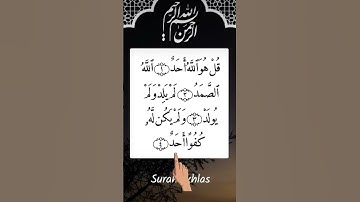 بسم الله الرحمن الرحيم
قُلْ هُوَ ٱللَّهُ أَحَدٌ ١ ٱللَّهُ
ٱلصَّمَدُ ٢ لَمْ يَلِدْ وَلَمْ
يُولَدْ ٣ وَلَمْ يَكُن لَّهُۥ
كُفُوًا أَحَدٌ ٤